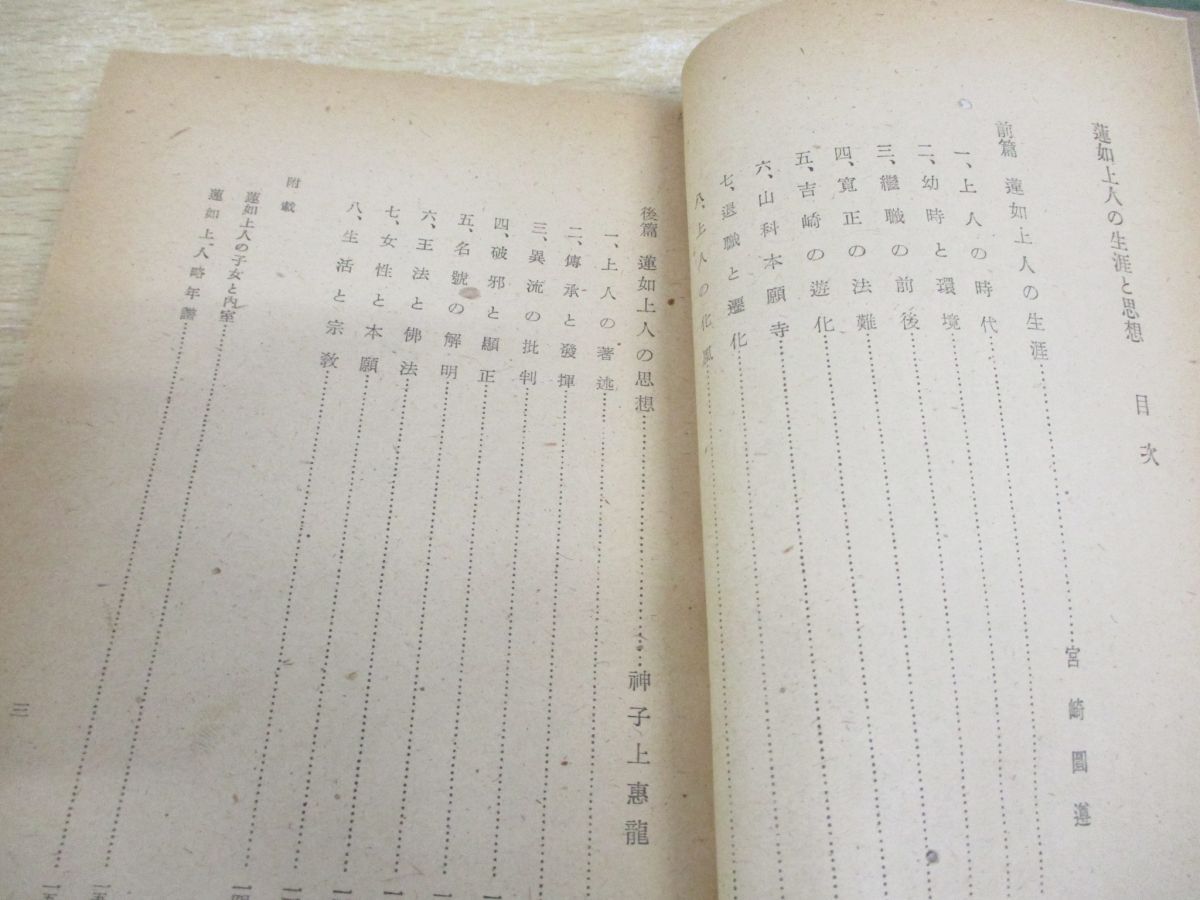 蓮如上人の生涯と思想 目次
前篇 蓮如上人の生涯……宮崎圓遵
一、上人の時代
二、幼時と環境
三、繼職の前後
四、寛正の法難
五、吉崎の遊化
六、山科本願寺
七、退職と遷化
八、上人の化風
後篇 蓮如上人の思想……神子上惠龍
一、上人の著述
二、傳承と發揮
三、異流の批判
四、破邪と顯正
五、名號の解明
六、王法と佛法
七、女性と本願
八、生活と宗教
附載
蓮如上人の子女と內室
蓮如上人時年譜
三